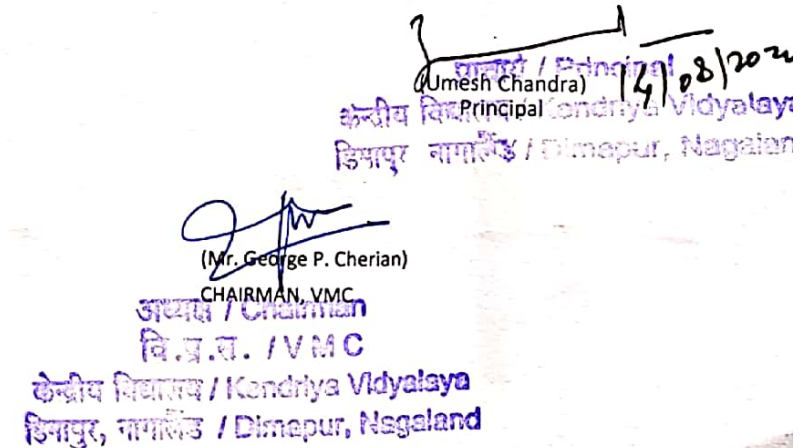 प्राचार्य / Principal
(Umesh Chandra) 14/08/202
Principal
केन्द्रीय विद्यालय / Kendriya Vidyalaya
डिमापुर नागालैंड / Dimapur, Nagalan
(Mr. George P. Cherian)
CHAIRMAN, VMC
अध्यक्ष / Chairman
वि.प्र.स. / V M C
केन्द्रीय विद्यालय / Kendriya Vidyalaya
डिमापुर, नागालैंड / Dimapur, Nagaland